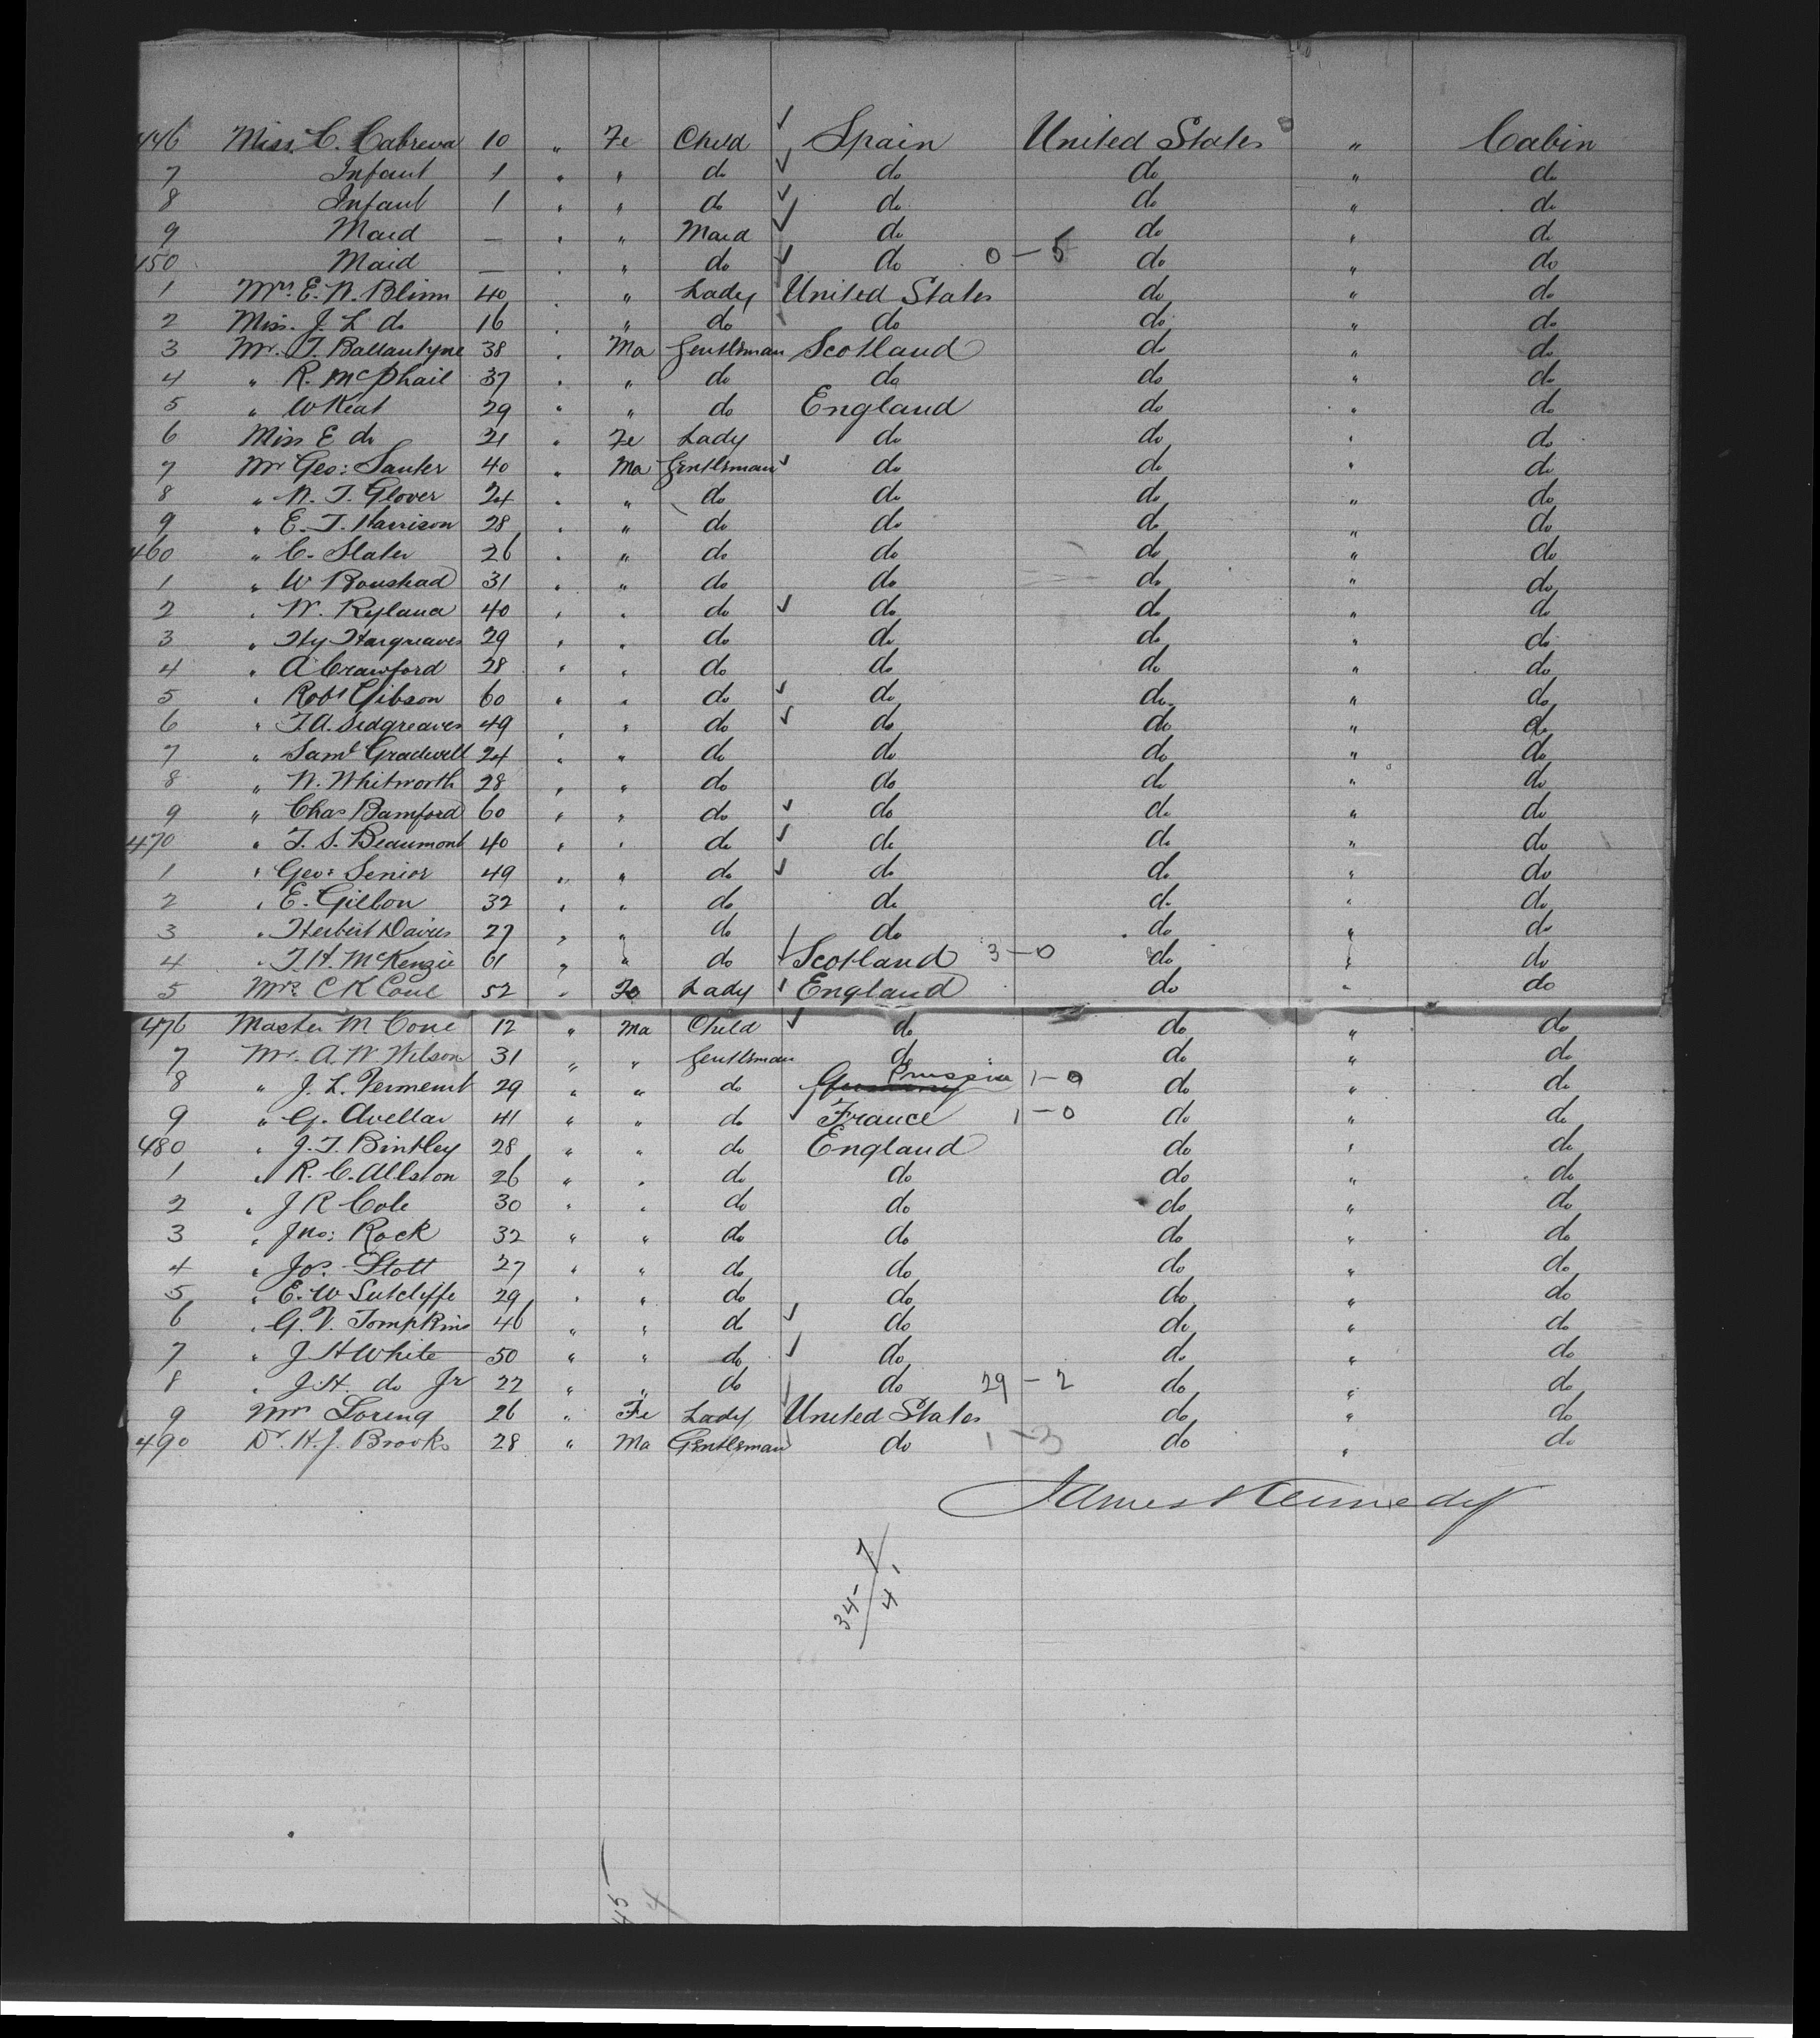 446 Miss C. Cabrera 10 " Fe Child ✓ Spain United States " Cabin
7 Infant 1 " " do ✓ do do " do
8 Infant 1 " " do ✓ do do " do
9 Maid — " " Maid ✓ do do " do
450 Maid — " " do ✓ do 0 – 5 do " do
1 Mrs. E. N. Blinn 40 " " Lady United States do " do
2 Miss. J. L do 16 " " do do do " do
3 Mr. T. Ballantyne 38 " Ma Gentleman Scotland do " do
4 " R. McPhail 37 " " do do do " do
5 " W Keat 29 " " do England do " do
6 Miss E do 21 " Fe Lady do do " do
7 Mr Geo: Santer 40 " Ma Gentleman ✓ do do " do
8 " N. T. Glover 24 " " do do do " do
9 " E. T. Harrison 28 " " do do do " do
460 " C. Slater 26 " " do do do " do
1 " W Roushad 31 " " do do do " do
2 " W. Ryland 40 " " do ✓ do do " do
3 " Hy Hargreaves 29 " " do do do " do
4 " A Crawford 28 " " do do do " do
5 " Robt Gibson 60 " " do ✓ do do " do
6 " T. A. Sedgreaves 49 " " do ✓ do do " do
7 " Saml Gradwell 24 " " do do do " do
8 " W. Whitworth 28 " " do do do " do
9 " Chas Bamford 60 " " do ✓ do do " do
470 " T. S. Beaumont 40 " " do ✓ do do " do
1 " Geo: Senior 49 " " do ✓ do do " do
2 " E. Gilbon 32 " " do do do " do
3 " Herbert Davies 27 " " do do do " do
4 " T. H. McKenzie 61 " " do ✓ Scotland 3 – 0 do " do
5 Mrs C K Cone 52 " Fe Lady ✓ England do " do
476 Master M Cone 12 " Ma Child ✓ do do " do
7 Mr. A. W. Wilson 31 " " Gentleman do do " do
8 " J. L. Vermemt 29 " " do Germany Prussia 1 – 0 do " do
9 " G. Avellar 41 " " do ✓ France 1 – 0 do " do
480 " J. T. Bintley 28 " " do England do " do
1 " R. C. Allston 26 " " do do do " do
2 " J R Cole 30 " " do do do " do
3 " Jno: Rock 32 " " do do do " do
4 " Jos. Stott 27 " " do do do " do
5 " E. W Sutcliffe 29 " " do do do " do
6 " G. V. Tompkins 46 " " do ✓ do do " do
7 " J H White 50 " " do ✓ do do " do
8 " J. H. do Jr 22 " " do do 29 – 2 do " do
9 Mrs Loring 26 " Fe Lady United States do " do
490 Dr. H. J. Brooks 28 " Ma Gentleman do 1 – 3 do " do
James Kennedy
34 – 7
41
45 –
4